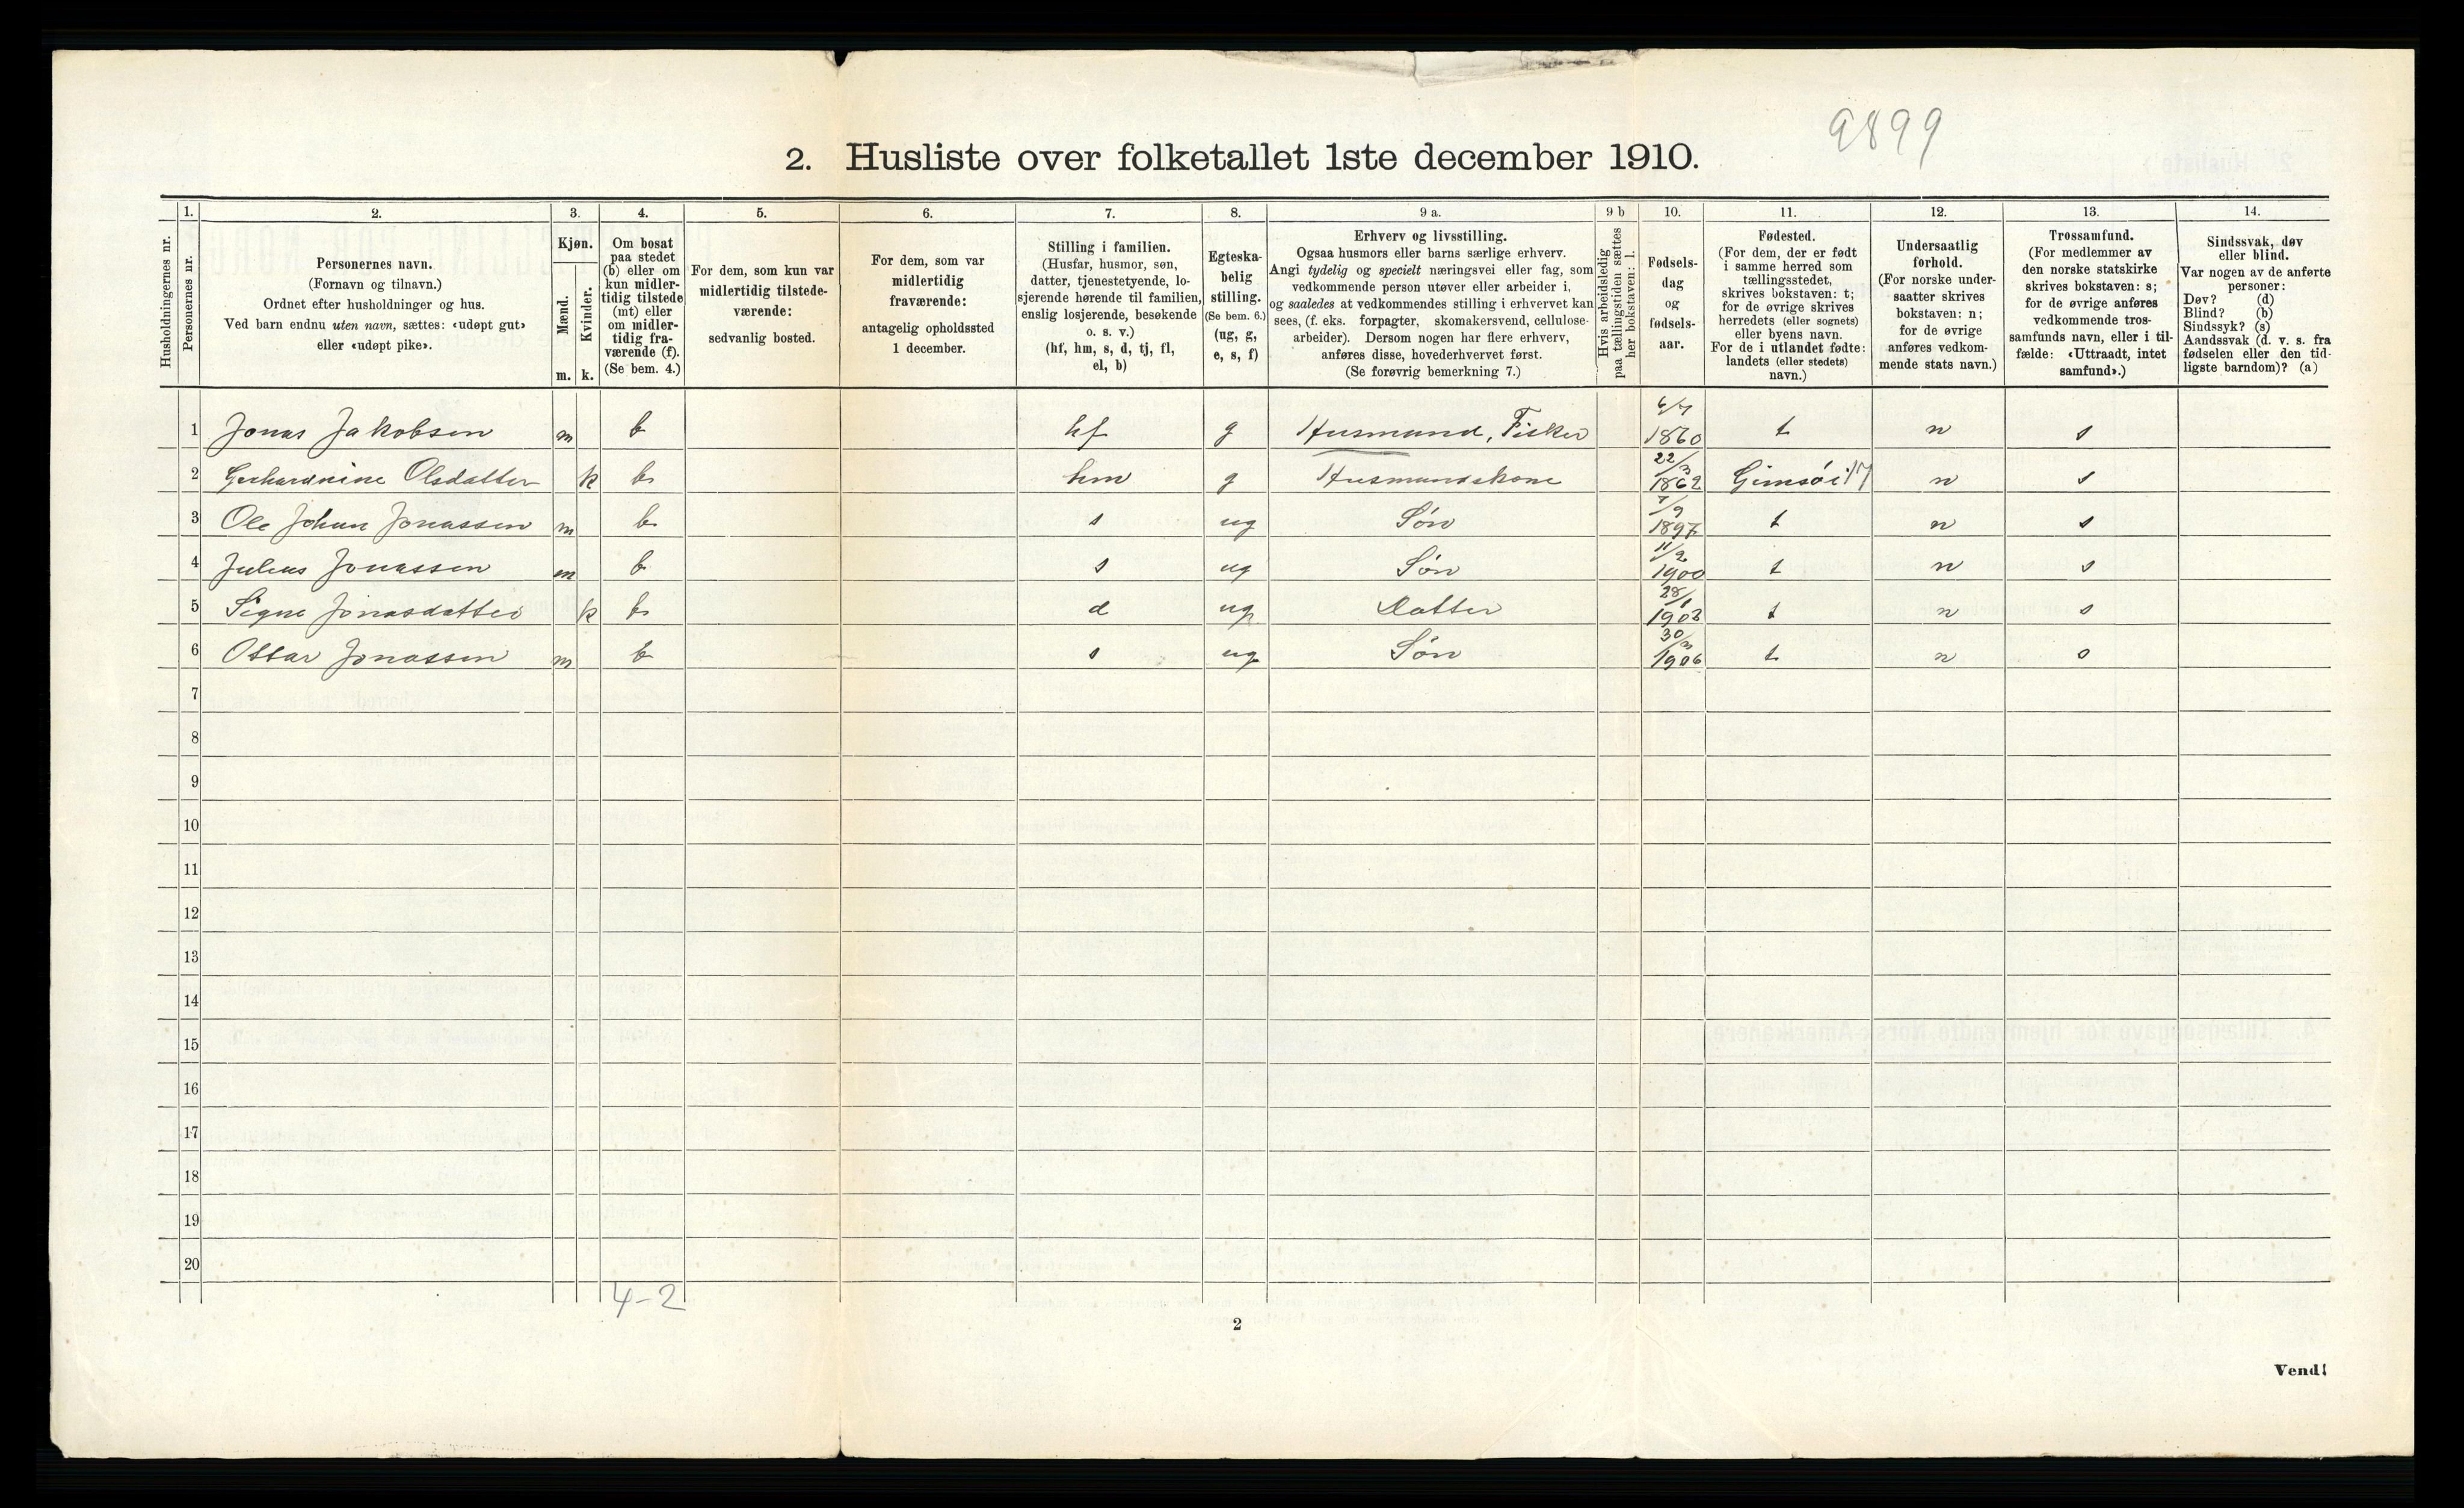 9899
2. Husliste over folketallet 1ste december 1910.
Husholdningernes nr.
1.
Personernes nr.
2.
Personernes navn.
(Fornavn og tilnavn.)
Ordnet efter husholdninger og hus.
Ved barn endnu uten navn, sættes: «udøpt gut»
eller «udøpt pike».
3.
Kjøn.
Mænd.
Kvinder.
m.
k.
4.
Om bosat
paa stedet
(b) eller om
kun midler-
tidig tilstede
(mt) eller
om midler-
tidig fra-
værende (f).
(Se bem. 4.)
5.
For dem, som kun var
midlertidig tilstede-
værende:
sedvanlig bosted.
6.
For dem, som var
midlertidig
fraværende:
antagelig opholdssted
1 december.
7.
Stilling i familien.
(Husfar, husmor, søn,
datter, tjenestetyende, lo-
sjerende hørende til familien,
enslig losjerende, besøkende
o. s. v.)
(hf, hm, s, d, tj, fl,
el, b)
8.
Egteska-
belig
stilling.
(Se bem. 6.)
(ug, g,
e, s, f)
9 a.
Erhverv og livsstilling.
Ogsaa husmors eller barns særlige erhverv.
Angi tydelig og specielt næringsvei eller fag, som
vedkommende person utøver eller arbeider i,
og saaledes at vedkommendes stilling i erhvervet kan
sees, (f. eks. forpagter, skomakersvend, cellulose-
arbeider). Dersom nogen har flere erhverv,
anføres disse, hovederhvervet først.
(Se forøvrig bemerkning 7.)
9 b
Hvis arbeidsledig
paa tællingstiden sættes
her bokstaven: l.
10.
Fødsels-
dag
og
fødsels-
aar.
11.
Fødested.
(For dem, der er født
i samme herred som
tællingsstedet,
skrives bokstaven: t;
for de øvrige skrives
herredets (eller sognets)
eller byens navn.
For de i utlandet fødte:
landets (eller stedets)
navn.)
12.
Undersaatlig
forhold.
(For norske under-
saatter skrives
bokstaven: n;
for de øvrige
anføres vedkom-
mende stats navn.)
13.
Trossamfund.
(For medlemmer av
den norske statskirke
skrives bokstaven: s;
for de øvrige anføres
vedkommende tros-
samfunds navn, eller i til-
fælde: «Uttraadt, intet
samfund».)
14.
Sindssvak, døv
eller blind.
Var nogen av de anførte
personer:
Døv? (d)
Blind? (b)
Sindssyk? (s)
Aandssvak (d. v. s. fra
fødselen eller den tid-
ligste barndom)? (a)
1 Jonas Jakobsen m b hf g Husmand, Fisker 6/7 1860 t n s
2 Gerhardnine Olsdatter k b hm g Husmandskone 22/3 1862 Gimsøi n s
3 Ole Johan Jonassen m b s ug Søn 7/9 1897 t n s
4 Julius Jonassen m b s ug Søn 11/2 1900 t n s
5 Signe Jonasdatter k b d ug Datter 28/1 1903 t n s
6 Ottar Jonassen m b s ug Søn 30/3 1906 t n s
7
8
9
10
11
12
13
14
15
16
17
18
19
20
4-2
2
Vend!